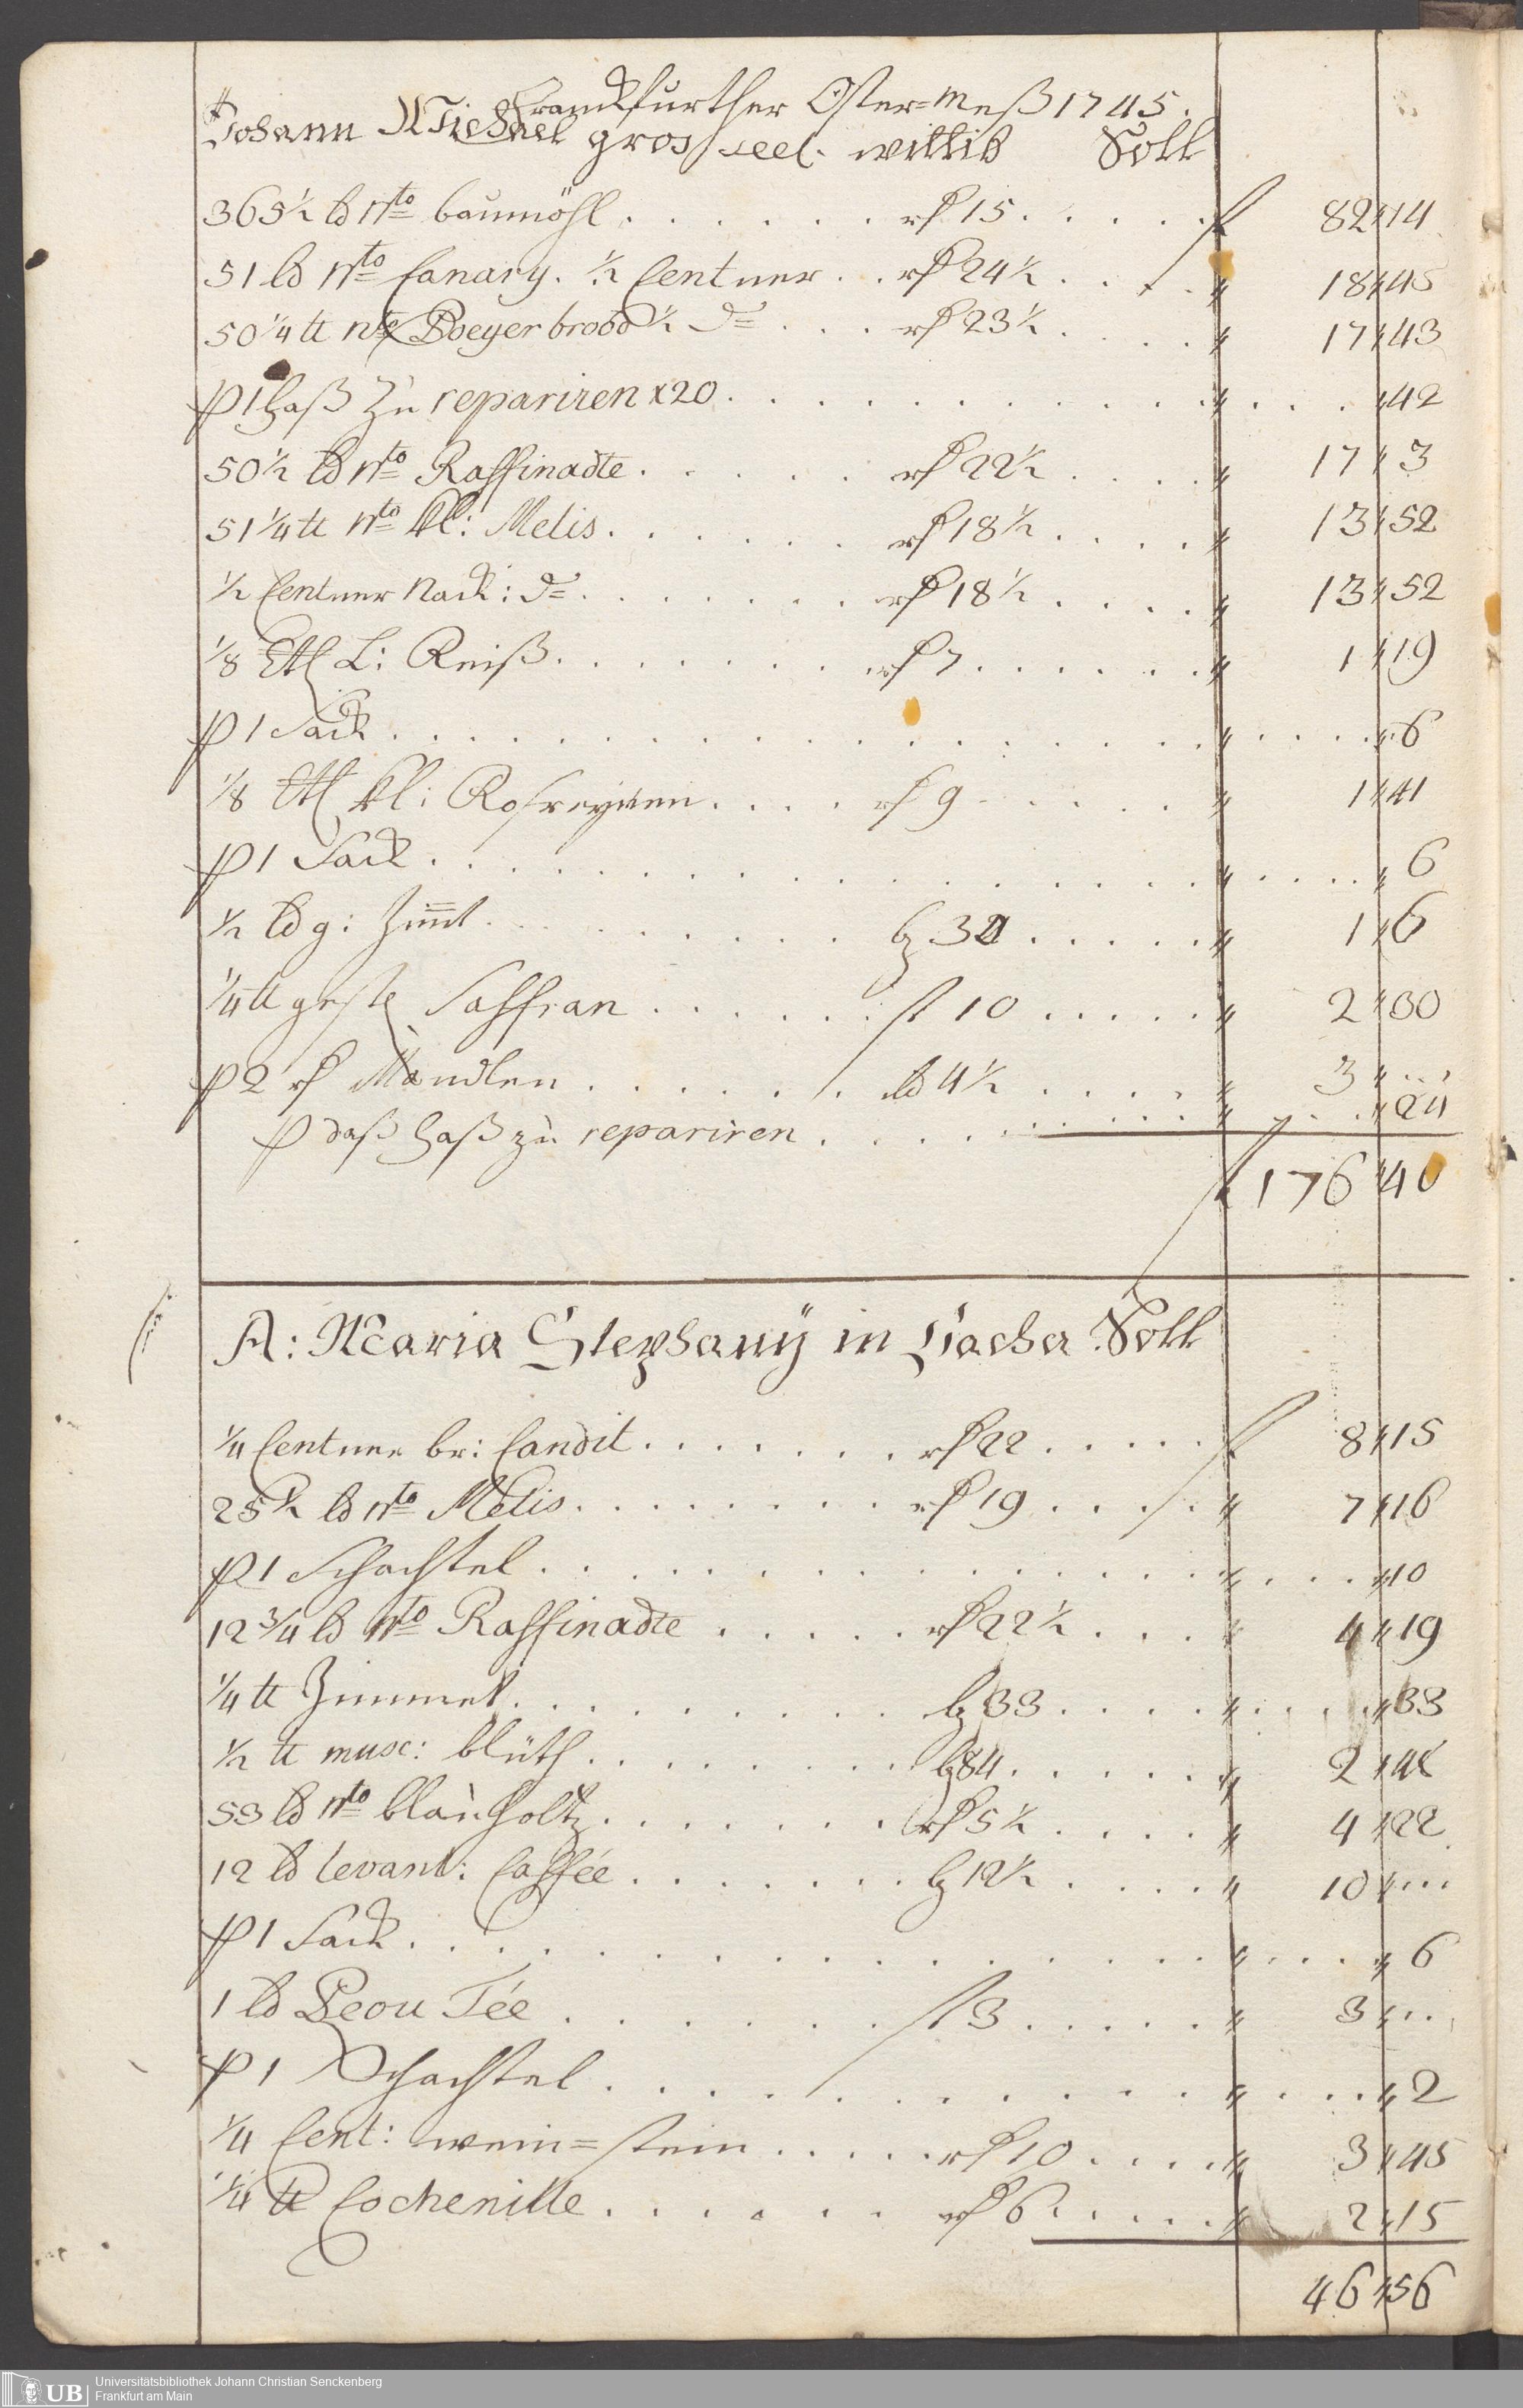 Franckfurther Oster=Meß 1745.
Johann Michael gros seel. wittib Soll
365½ ℔ Nto baumöhl . . . . . . rf 15 . . . . . f 82 " 14
51 ℔ Nto Canary. ½ Centner . . rf 24½ . . . . " 18 " 45
50¼ ℔ Nto Poeyer brodd ½ do . . . rf 23½ . . . . " 17 " 43
p 1 faß zu repariren x 20 . . . . . . . . . . . . " . . . " 42
50½ ℔ Nto Raffinadte . . . . . rf 22½ . . . . " 17 " 3
51¼ ℔ Nto kl: Melis . . . . . . rf 18½ . . . . " 13 " 52
½ Centner Nack: do . . . . . . . rf 18½ . . . . " 13 " 52
⅛ Ctl L: Reiß . . . . . . . . rf 7 . . . . . . " 1 " 19
p 1 Sack . . . . . . . . . . . . . . . . . " . . . . " 6
⅛ Ctl kl: Rosreynen . . . . rf 9 . . . . . " 1 " 41
p 1 Sack . . . . . . . . . . . . . . . . " . . . . " 6
½ ℔ g: Zimt . . . . . . . . . bz 32 . . . . . " 1 " 6
¼ ℔ geste Saffran . . . . . . f 10 . . . . . " 2 " 30
p 2 rf Mandlen . . . . . . ℔ 4½ . . . . . " 3 " . . .
p daß faß zu repariren . . . . . . . . . . " . . . " 24
f 176 " 40
A: Maria Stephanÿ in Vacha Soll
¼ Centner br: Candit . . . . . . . rf 22 . . . . . f 8 " 15
25½ ℔ Nto Melis . . . . . . . . rf 19 . . . . . " 7 " 16
p 1 Schachtel . . . . . . . . . . . . . . . " . . . . " 10
12¾ ℔ Nto Raffinadte . . . . . rf 22½ . . . . " 4 " 19
¼ ℔ Zimmet . . . . . . . . . bz 33 . . . . . " . . . . " 33
½ ℔ musc: blüth . . . . . . . . bz 84 . . . . . " 2 " 48
53 ℔ Nto blau: holtz . . . . . . . rf 5½ . . . . " 4 " 22
12 ℔ levant: Caffée . . . . . . . bz 12½ . . . . " 10 " . . .
p 1 Sack . . . . . . . . . . . . . . . . . " . . . . " 6
1 ℔ Peou Tée . . . . . . . f 3 . . . . . " 3 " . . .
p 1 Schachtel . . . . . . . . . . . . . " . . . . " 2
¼ Cent: wein=stein . . . . . rf 10 . . . . . " 3 " 45
¼ ℔ Cochenille . . . . . . rf 6 . . . . . " 2 " 15
46 " 56
UB Universitätsbibliothek Johann Christian Senckenberg
Frankfurt am Main